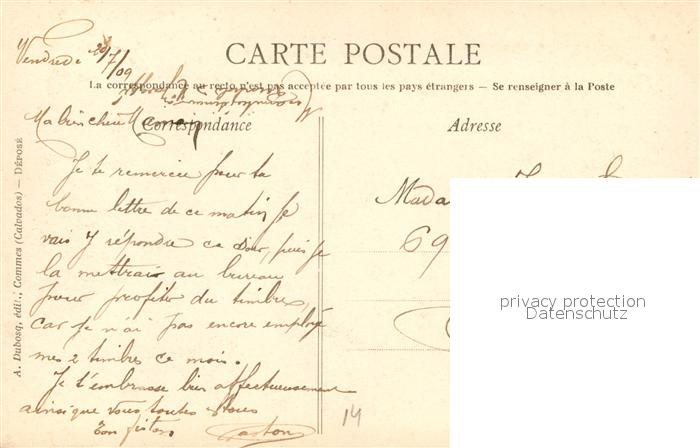 Vendredi 23/7/09
CARTE POSTALE
La correspondance au recto n'est pas acceptée par tous les pays étrangers — Se renseigner à la Poste
Ma bien chère Maman
Correspondance
Je te remercie pour ta
bonne lettre de ce matin je
vais y répondre ce soir, puis je
la mettrais au bureau
pour profiter du timbre,
car je n'ai pas encore employé
mes 2 timbres ce mois.
Je t'embrasse bien affectueusement
ainsi que vous toutes & tous
Ton fiston Gaston
14
Adresse
Mada
69
privacy protection
Datenschutz
A. Dubosq, édit., Commes (Calvados) — DÉPOSÉ